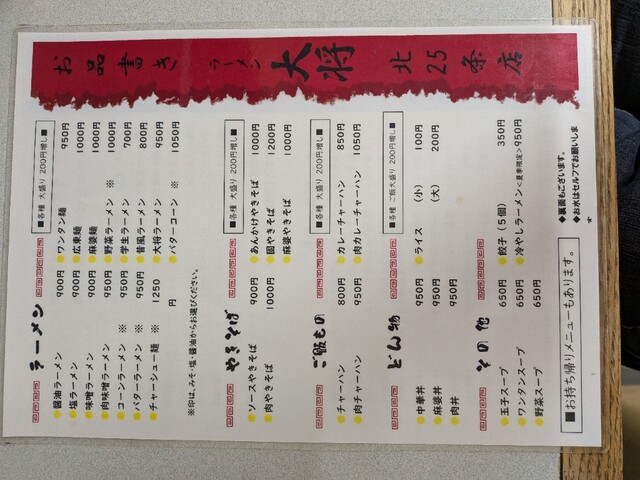 お品書き ラーメン 大将 北25条店
ラーメン ■各種 大盛り 200円増し■
醤油ラーメン 900円 ワンタン麺 950円
塩ラーメン 900円 広東麺 1000円
味噌ラーメン 900円 麻婆麺 1000円
肉味噌ラーメン 950円 野菜ラーメン ※ 1000円
コーンラーメン ※ 950円 学生ラーメン 700円
バターラーメン ※ 950円 昔風ラーメン 800円
チャーシュー麺 ※ 1250 大将ラーメン 950円
円 バターコーン ※ 1050円
※印は、みそ・塩・醤油からお選びください。
やきそば ■各種 大盛り 200円増し■
ソースやきそば 900円 あんかけやきそば 1000円
肉やきそば 1000円 固やきそば 1200円
麻婆やきそば 1000円
ご飯もの ■各種 大盛り 200円増し■
チャーハン 800円 カレーチャーハン 850円
肉チャーハン 950円 肉カレーチャーハン 1050円
どん物 ■各種 ご飯大盛り 200円増し■
中華丼 950円 ライス (小) 100円
麻婆丼 950円 (大) 200円
肉丼 950円
その他
玉子スープ 650円 餃子(5個) 350円
ワンタンスープ 650円 冷やしラーメン<夏季限定>950円
野菜スープ 650円
■お持ち帰りメニューもあります。
◆裏面もございます。
◆お水はセルフでお願いしま
す